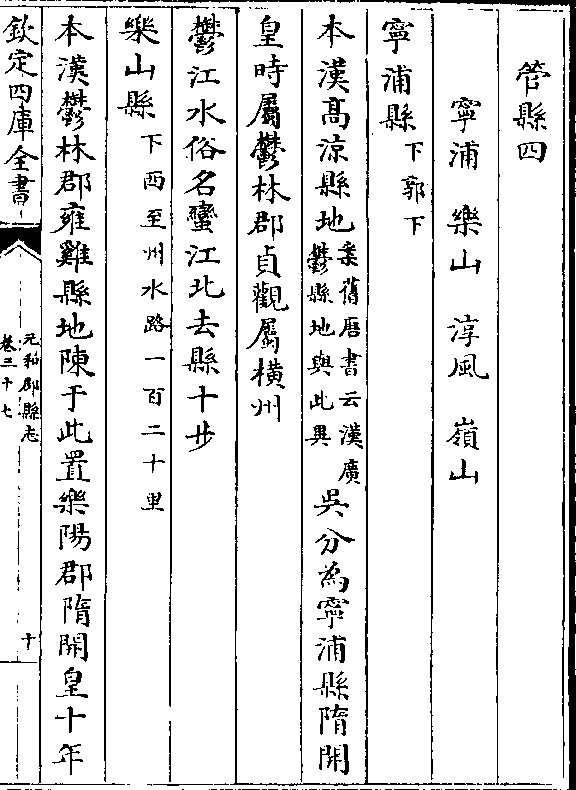 管縣四
寧浦　樂山　淳風　嶺山
寧浦縣下郭下
本漢高涼縣地案舊唐書云漢廣鬱縣地與此異吳分為寧浦縣隋開
皇時屬鬱林郡貞觀屬橫州
鬱江水俗名蠻江北去縣十步
樂山縣下西至州水路一百二十里
本漢鬱林郡雍雞縣地陳于此置樂陽郡隋開皇十年
欽定四庫全書
元和郡縣志
卷三十七
十